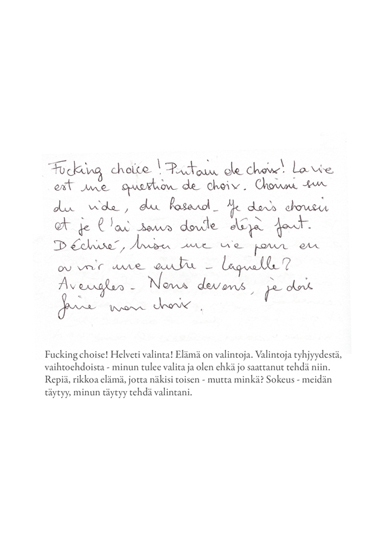 Fucking choice ! Putain de choix! La vie
est une question de choix. Choisir sur
du vide, du hasard. Je dois choisir
et je l'ai sans doute déjà fait.
Déchirer, briser une vie pour en
ouvrir une autre - Laquelle?
Aveugles - Nous devons, je dois
faire mon choix.
Fucking choise! Helveti valinta! Elämä on valintoja. Valintoja tyhjyydestä,
vaihtoehdoista - minun tulee valita ja olen ehkä jo saattanut tehdä niin.
Repiä, rikkoa elämä, jotta näkisi toisen - mutta minkä? Sokeus - meidän
täytyy, minun täytyy tehdä valintani.